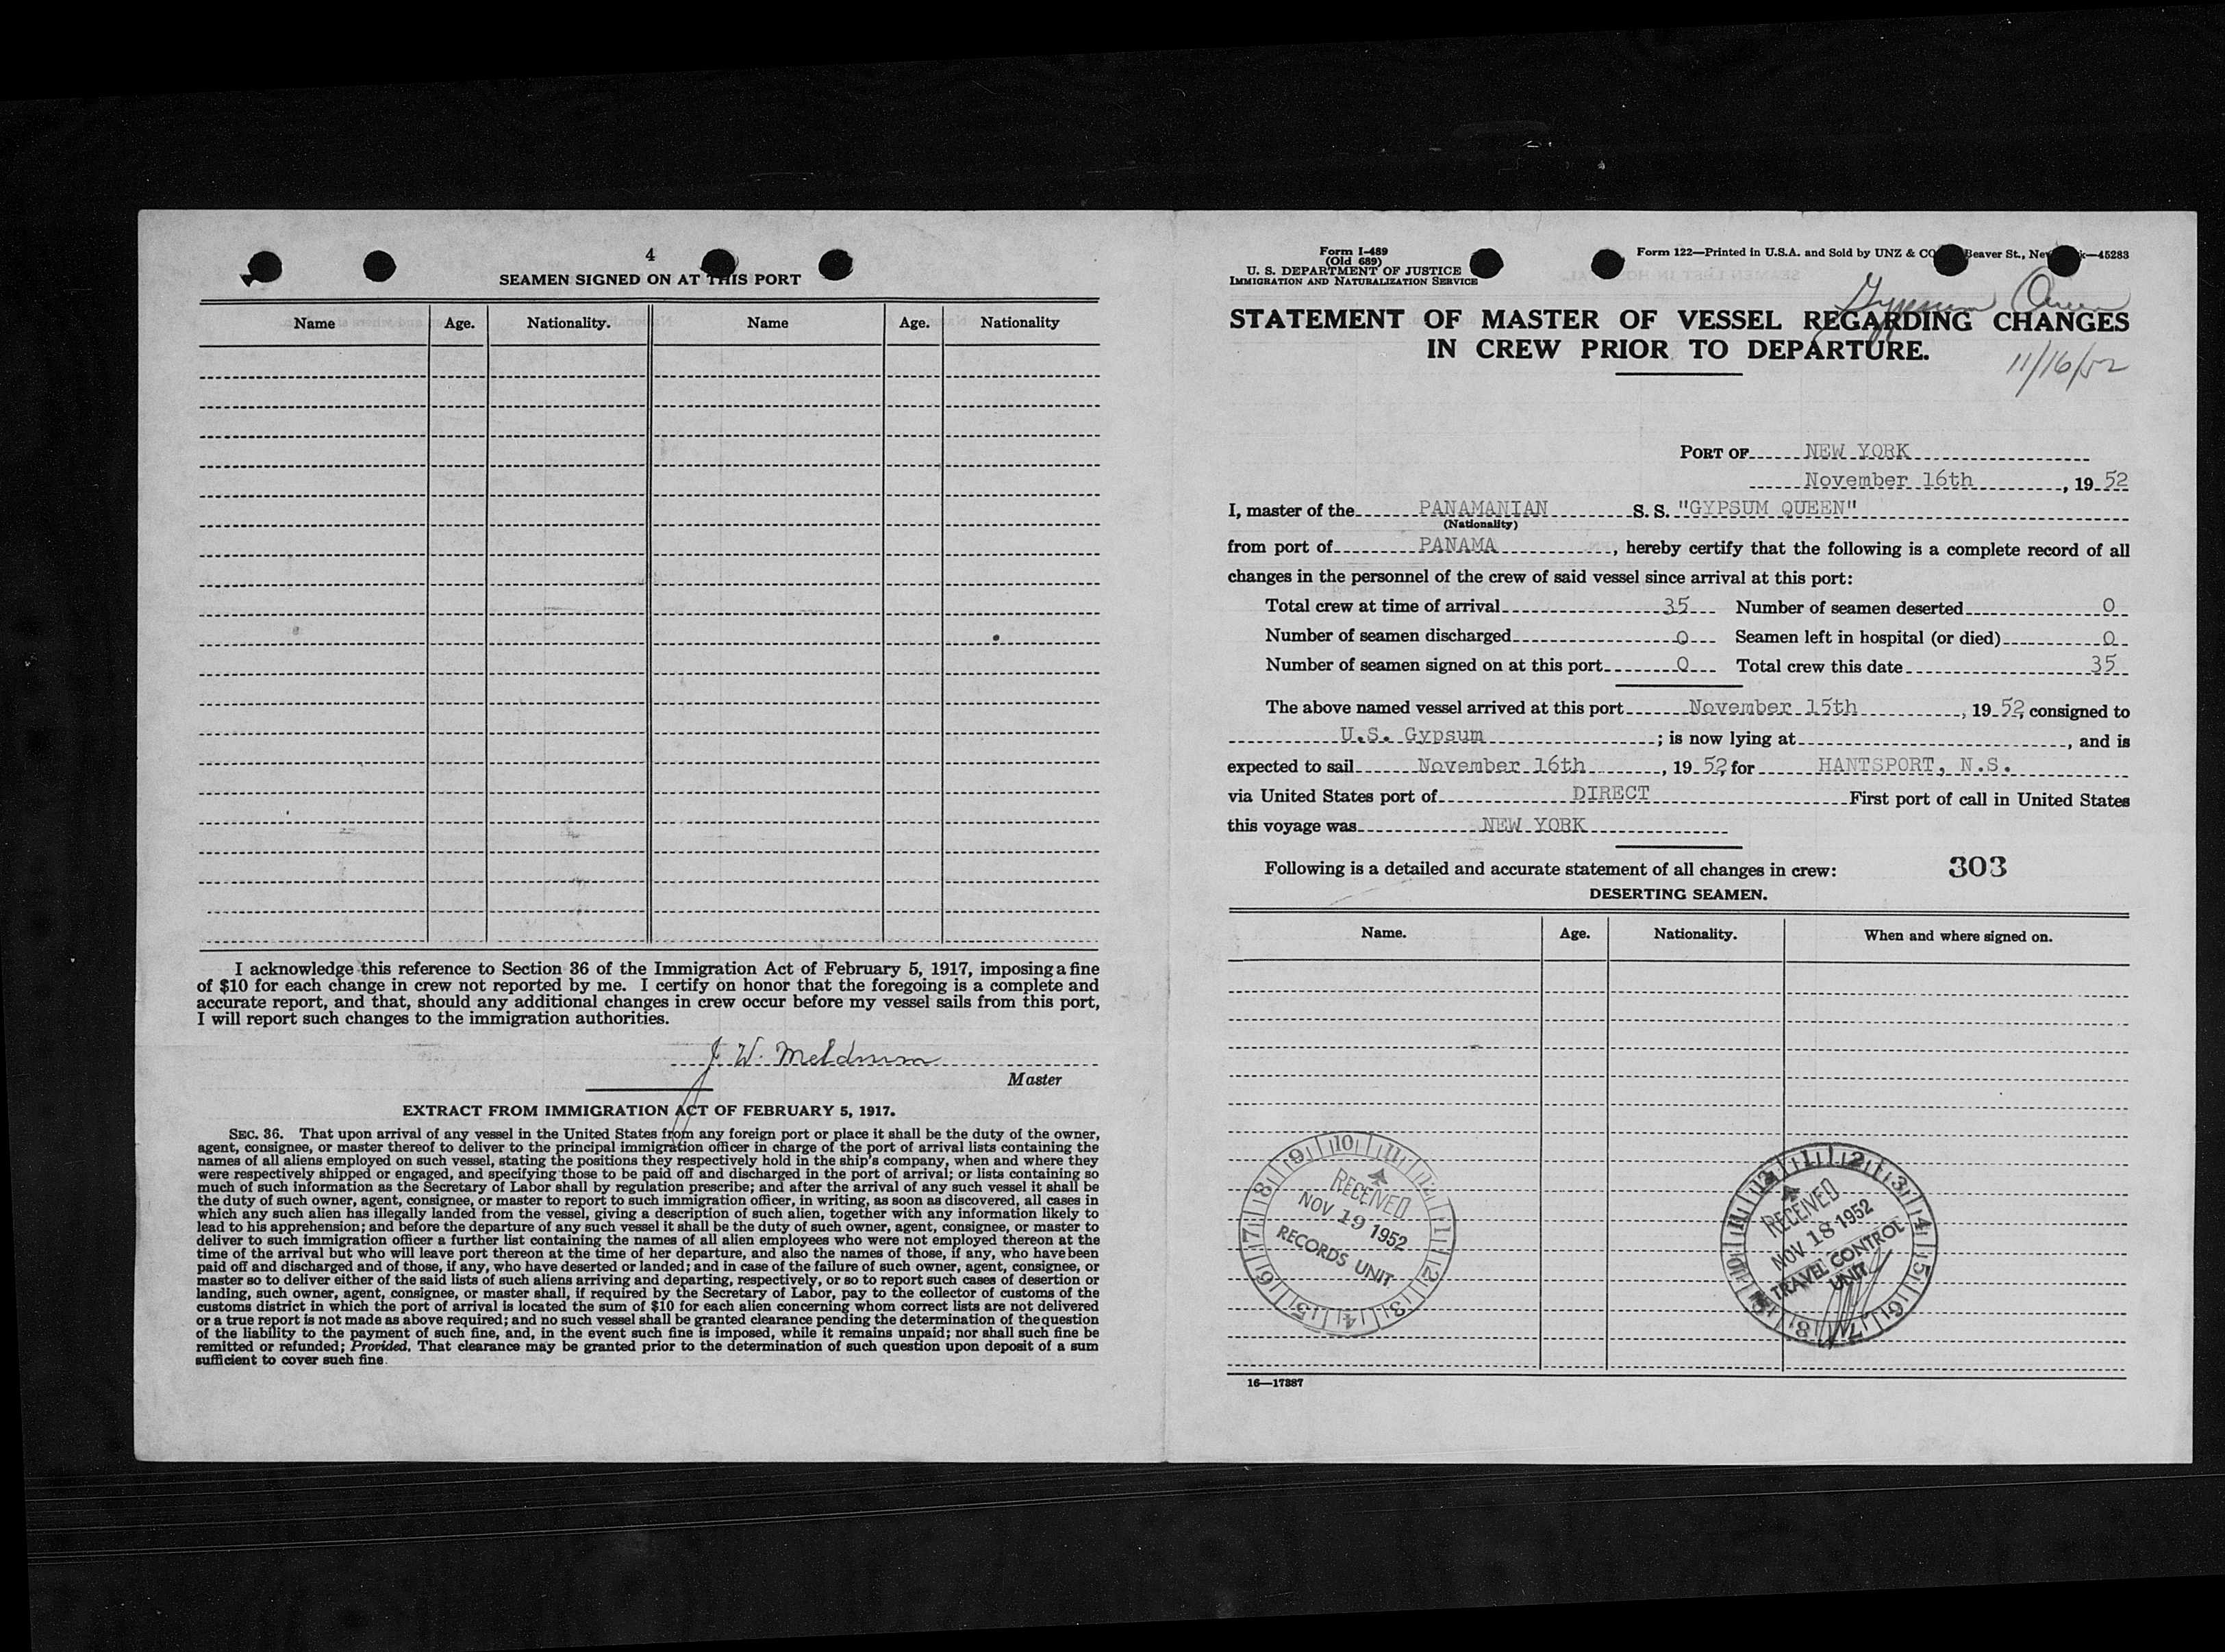 4
SEAMEN SIGNED ON AT THIS PORT
Name Age. Nationality. Name Age. Nationality
I acknowledge this reference to Section 36 of the Immigration Act of February 5, 1917, imposing a fine
of $10 for each change in crew not reported by me. I certify on honor that the foregoing is a complete and
accurate report, and that, should any additional changes in crew occur before my vessel sails from this port,
I will report such changes to the immigration authorities.
J W. Meldrum
Master
EXTRACT FROM IMMIGRATION ACT OF FEBRUARY 5, 1917.
SEC. 36. That upon arrival of any vessel in the United States from any foreign port or place it shall be the duty of the owner,
agent, consignee, or master thereof to deliver to the principal immigration officer in charge of the port of arrival lists containing the
names of all aliens employed on such vessel, stating the positions they respectively hold in the ship's company, when and where they
were respectively shipped or engaged, and specifying those to be paid off and discharged in the port of arrival; or lists containing so
much of such information as the Secretary of Labor shall by regulation prescribe; and after the arrival of any such vessel it shall be
the duty of such owner, agent, consignee, or master to report to such immigration officer, in writing, as soon as discovered, all cases in
which any such alien has illegally landed from the vessel, giving a description of such alien, together with any information likely to
lead to his apprehension; and before the departure of any such vessel it shall be the duty of such owner, agent, consignee, or master to
deliver to such immigration officer a further list containing the names of all alien employees who were not employed thereon at the
time of the arrival but who will leave port thereon at the time of her departure, and also the names of those, if any, who have been
paid off and discharged and of those, if any, who have deserted or landed; and in case of the failure of such owner, agent, consignee, or
master so to deliver either of the said lists of such aliens arriving and departing, respectively, or so to report such cases of desertion or
landing, such owner, agent, consignee, or master shall, if required by the Secretary of Labor, pay to the collector of customs of the
customs district in which the port of arrival is located the sum of $10 for each alien concerning whom correct lists are not delivered
or a true report is not made as above required; and no such vessel shall be granted clearance pending the determination of the question
of the liability to the payment of such fine, and, in the event such fine is imposed, while it remains unpaid; nor shall such fine be
remitted or refunded; Provided, That clearance may be granted prior to the determination of such question upon deposit of a sum
sufficient to cover such fine.
Form I-489
(Old 689)
U. S. DEPARTMENT OF JUSTICE
IMMIGRATION AND NATURALIZATION SERVICE
Form 122—Printed in U.S.A. and Sold by UNZ & CO Beaver St., New k—45283
Gypsum Queen
STATEMENT OF MASTER OF VESSEL REGARDING CHANGES
IN CREW PRIOR TO DEPARTURE.
11/16/52
PORT OF NEW YORK
November 16th, 19 52
I, master of the PANAMANIAN S. S. "GYPSUM QUEEN"
(Nationality)
from port of PANAMA, hereby certify that the following is a complete record of all
changes in the personnel of the crew of said vessel since arrival at this port:
Total crew at time of arrival 35 Number of seamen deserted 0
Number of seamen discharged 0 Seamen left in hospital (or died) 0
Number of seamen signed on at this port 0 Total crew this date 35
The above named vessel arrived at this port November 15th, 19 52, consigned to
U.S. Gypsum; is now lying at , and is
expected to sail November 16th, 19 52, for HANTSPORT, N.S.
via United States port of DIRECT First port of call in United States
this voyage was NEW YORK
Following is a detailed and accurate statement of all changes in crew: 303
DESERTING SEAMEN.
Name. Age. Nationality. When and where signed on.
9 10 11 12 1 2 3 4 5 6 7 8
RECEIVED
NOV 19 1952
RECORDS UNIT
12 1 2 3 4 5 6 7 8 9 10 11
RECEIVED
NOV 18 1952
TRAVEL CONTROL
UNIT
16—17387